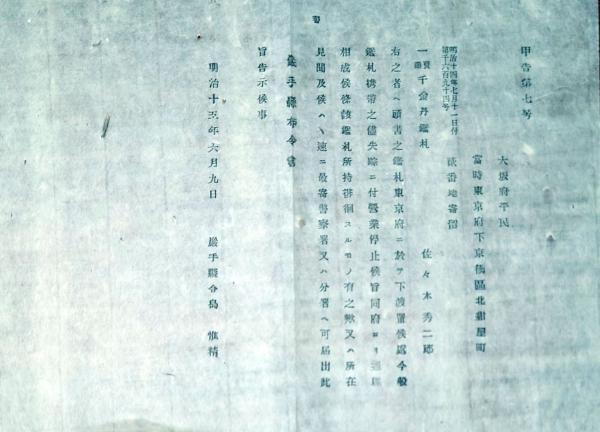 甲告第七号
大坂府平民
當時東京府下京橋區北紺屋町
貳番地寄留
佐々木秀二郎
明治十四年七月十一日付
第千六百九十四号
一賣藥千金丹鑑札
右之者ヘ頭書之鑑札東京府ニ於テ下渡置候處今般
鑑札携帶之儘失踪ニ付營業停止候旨同府ヨリ通牒
相成候條該鑑札所持徘徊スルモノ有之歟又ハ所在
見聞及候ハヽ速ニ最寄警察署又ハ分署ヘ可届出此
旨告示候事
明治十五年六月九日
巖手縣令島惟精
巖手縣布令書